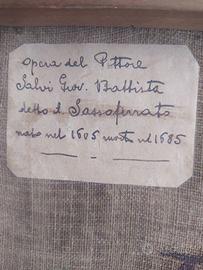 Opera del Pittore
Salvi Giov. Battista
detto il Sassoferrato
nato nel 1605 morto nel 1685